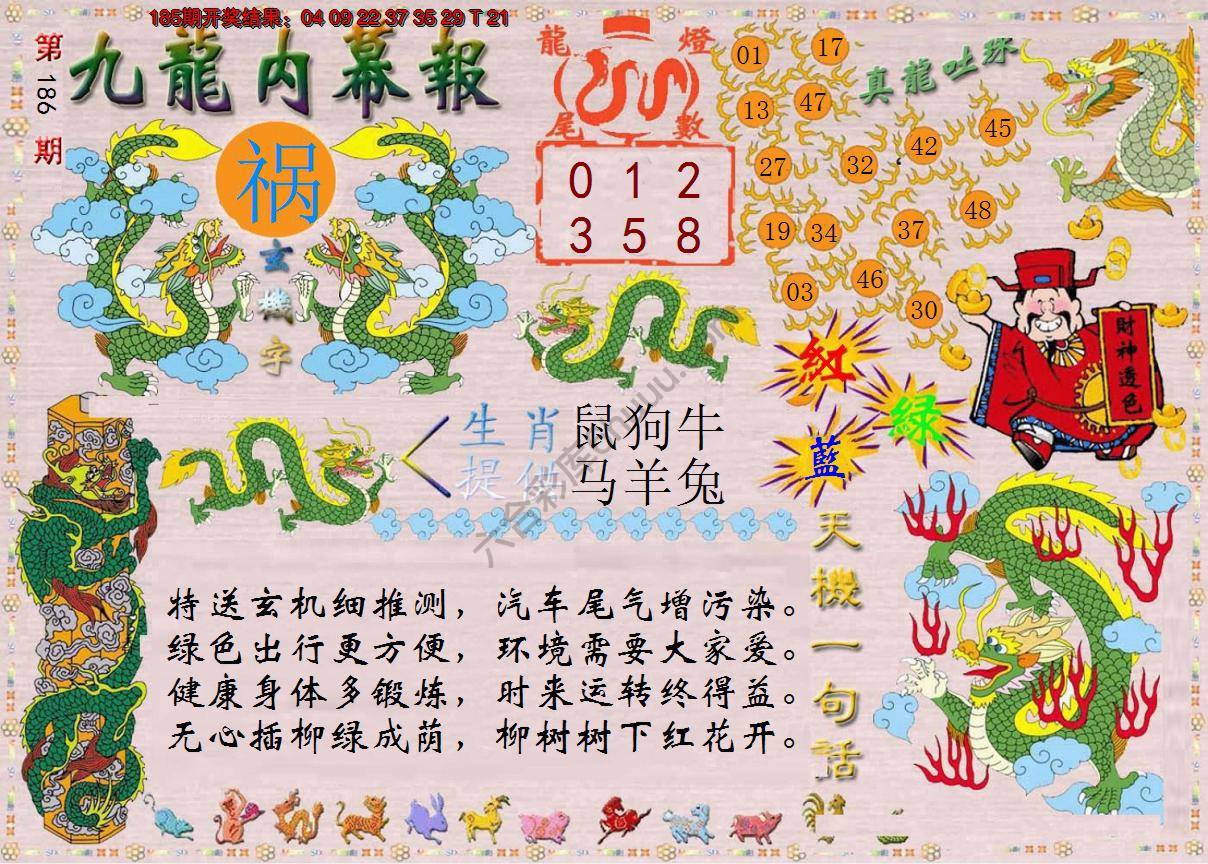 185期开奖结果：04 09 22 37 35 29 T 21
第186期
九龍内幕報
祸
玄機字
龍燈
尾數
0 1 2
3 5 8
真龍吐珠
01 17
13 47
27 32 42 45
19 34 37 48
03 46 30
紅
绿
藍
財神透色
生肖提供
鼠狗牛
马羊兔
特送玄机细推测，汽车尾气增污染。
绿色出行更方便，环境需要大家爱。
健康身体多锻炼，时来运转终得益。
无心插柳绿成荫，柳树树下红花开。
天機一句話